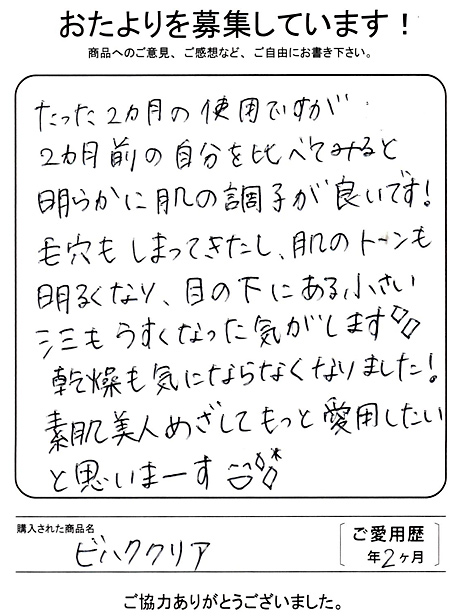 おたよりを募集しています！
商品へのご意見、ご感想など、ご自由にお書き下さい。
たった2ヵ月の使用ですが
2ヵ月前の自分を比べてみると
明らかに肌の調子が良いです!
毛穴もしまってきたし、肌のトーンも
明るくなり、目の下にある小さい
シミもうすくなった気がします
乾燥も気にならなくなりました!
素肌美人めざしてもっと愛用したい
と思いまーす
購入された商品名
ビハククリア
ご愛用歴
年2ヶ月
ご協力ありがとうございました。